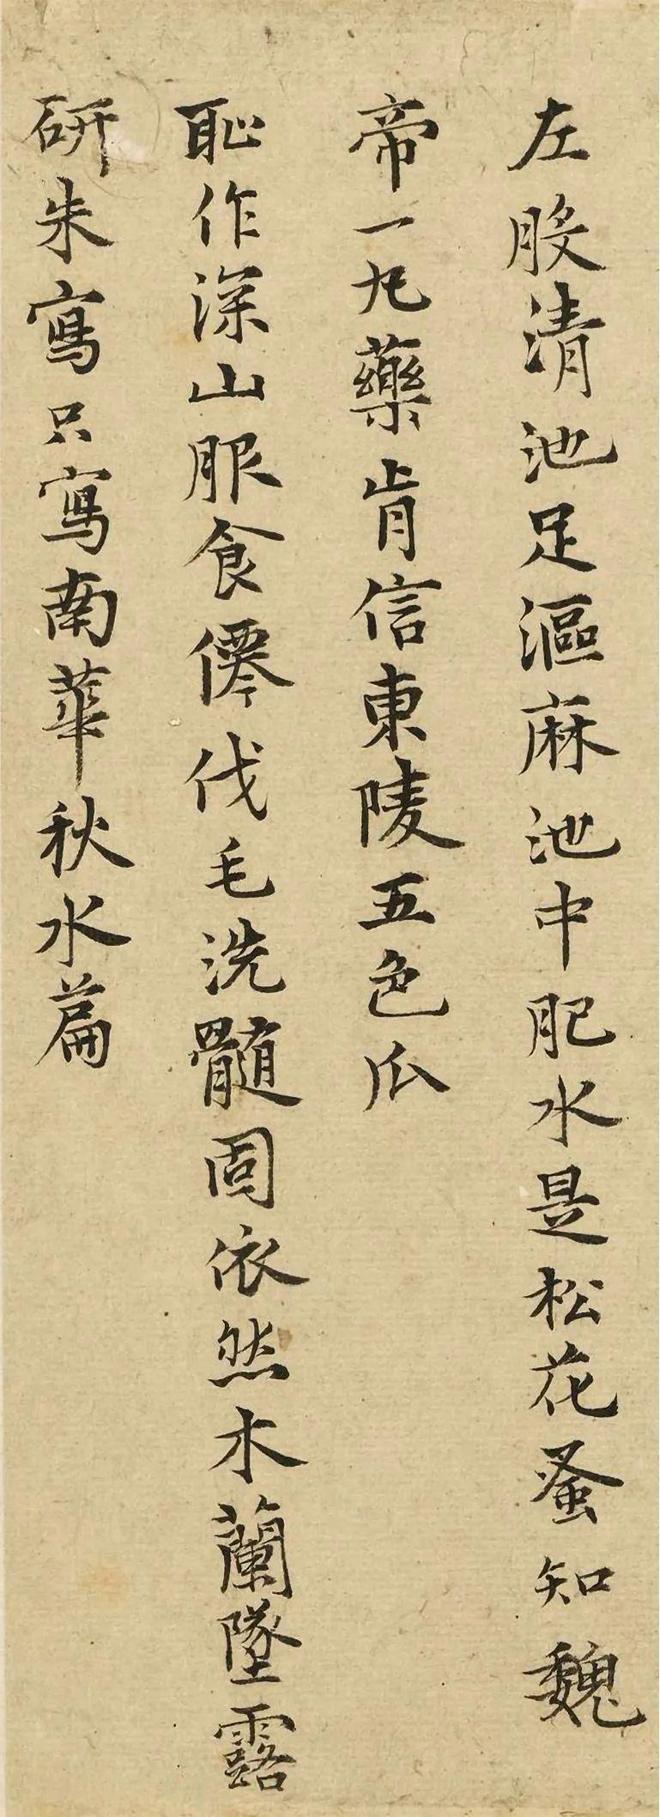 左股清池足漚麻池中肥水是松花蚤知魏
帝一丸藥肯信東陵五色瓜
恥作深山服食僊伐毛洗髓固依然木蘭墜露
研朱寫只寫南華秋水篇